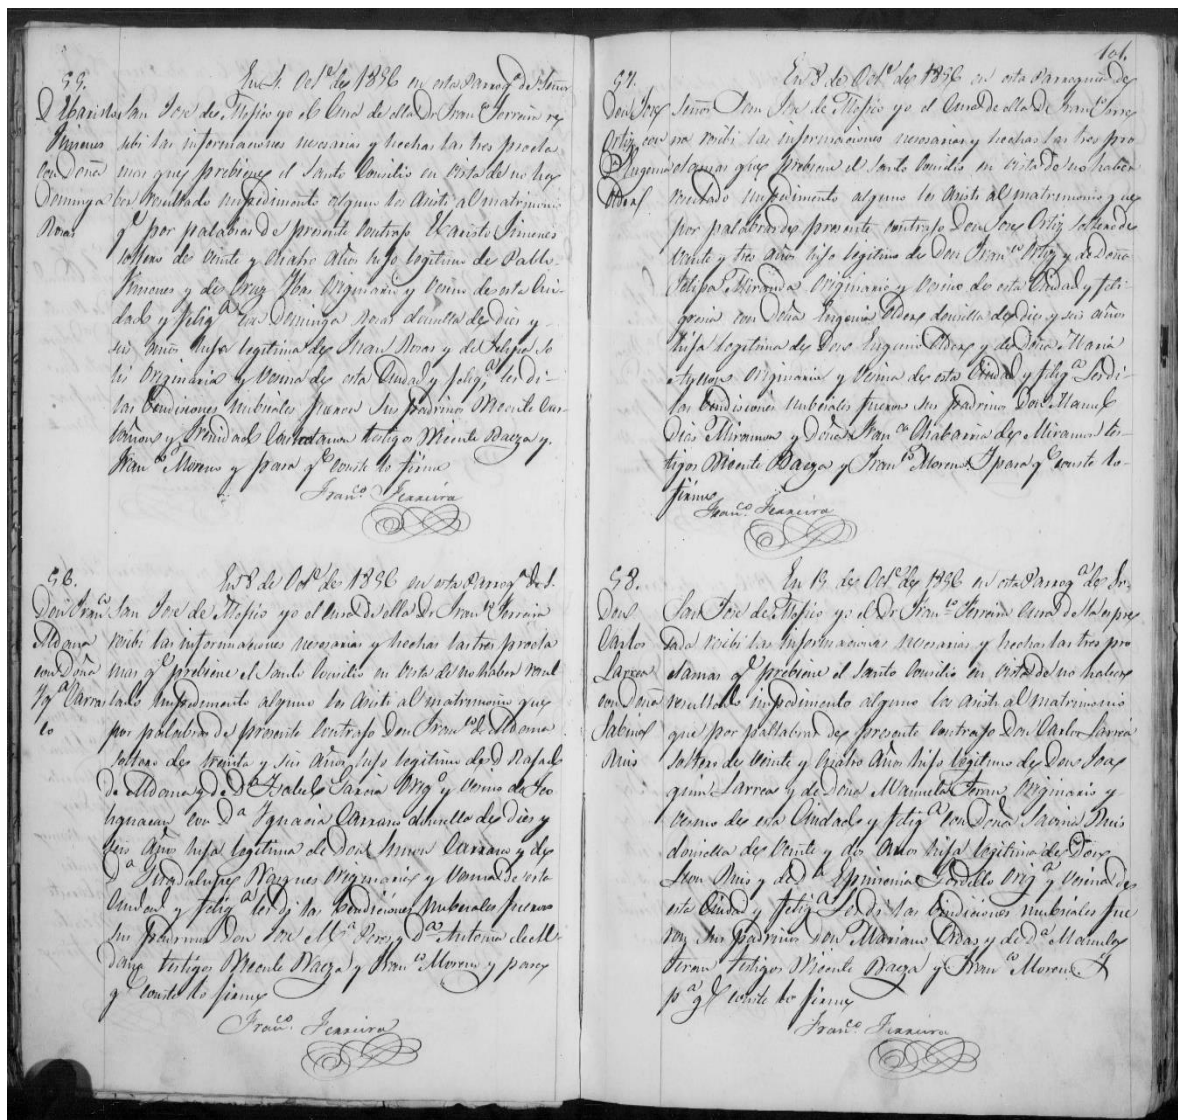 55.
D. Evaristo
Jimenes
con Doña
Dominga
Rosas
En 4. Oct.e de 1856 en esta Parroq.a de Señor
San José de Mopio yo el Cura de ella Dr Fran.co Ferreira re
sibi las informaciones nesesarias y hechas las tres procla
mas que prebiene el Santo Consilio en vista de no ha
ber resultado impedimento alguno los Asisti al matrimonio
q.e por palabras de presente contrajo Evaristo Jimenes
soltero de veinte y cuatro años hijo legitimo de Pablo
Jimenes y de Cruz originario y vesino de esta Ciu-
dad y felig.a con Dominga Rosas donsella de dies y
seis años hija legitima de Juan Rosas y de Felipa So
lis originaria y vesina de esta Ciudad y felig.a les di
las bendisiones nubsiales fueron sus padrinos Vicente Cas-
tañon y Trenidad testigos Vicente Baeza y
Fran.co Moreno y para q.e conste lo firme
Fran.co Ferreira
56.
Don Fran.co
Aldama
con Doña
Yg.a Carras
co
En 8 de Oct.e de 1856 en esta Parroq.a de S.
San José de Mopio yo el Cura de ella Dr. Fran.co Ferreira
recibi las informaciones nesesarias y hechas las tres procla
mas q.e prebiene el Santo Consilio en vista de no haber resul
tado impedimento alguno los Asisti al matrimonio que
por palabras de presente contrajo Don Fran.co de Aldama
soltero de treinta y seis años hijo legitimo de D Rafael
de Aldama y de D.a Isabel Garcia Orig.o y vesino de
con D.a Ygnacia Carrasco donsella de dies y
seis años hija legitima de Don Simon Carrasco y de
D.a Guadalupe originaria y vesina de esta
Ciudad y felig.a les di las bendisiones nubsiales fueron
sus padrinos Don José M.a Peres y D.a Antonia de Al-
dama testigos Vicente Baeza y Fran.co Moreno y para
q.e conste lo firme
Fran.co Ferreira
101.
57.
Don Jose
Ortiz con
D.a Eugenia
En 8 de Oct.e de 1856 en esta Parroquia de
Señor San Jose de Mopio yo el Cura de ella Dr Fran.co Ferrei
ra recibi las informaciones nesesarias y hechas las tres pro
clamas que prebiene el Santo Consilio en vista de no haber
resultado impedimento alguno los Asisti al matrimonio que
por palabras de presente contrajo Don Jose Ortiz soltero de
veinte y tres años hijo legitimo de Don Fran.co Ortiz y de Doña
Felipa Miranda originario y vesino de esta Ciudad y feli
gresia con Doña Eugenia donsella de dies y seis años
hija legitima de Don Eugenio y de Doña Maria
originaria y vesina de esta Ciudad y felig.a les di
las bendisiones nubsiales fueron sus padrinos Don Manuel
Dias Miramon y Doña Fran.ca de Miramon tes-
tigos Vicente Baeza y Fran.co Moreno. Y para q.e conste lo
firme
Fran.co Ferreira
58.
Don
Carlos
Larrea
con Doña
Sabina
Ruis
En 19 de Oct.e de 1856 en esta Parroq.a de Sr
San Jose de Mopio yo el Dr Fran.co Ferreira Cura de la espre
sada recibi las informaciones nesesarias y hechas las tres pro
clamas q.e prebiene el Santo Consilio en vista de no haber
resultado impedimento alguno los asisti al matrimonio
que por pallabras de presente contrajo Don Carlos Larrea
soltero de veinte y cuatro años hijo legitimo de Don Joa
quin Larrea y de Doña Manuela Teran originario y
vesino de esta Ciudad y felig.a con Doña Savina Ruis
donsella de veinte y dos años hija legitima de Don
Leon Ruis y de D.a Epimenia Gordillo Orig.a y vesina de
esta Ciudad y felig.a Les di las bendisiones nubsiales fue
ron sus padrinos Don Mariano Ordas y de D.a Manuela
Teran testigos Vicente Baeza y Fran.co Moreno. Y
p.a q.e conste lo firme
Fran.co Ferreira